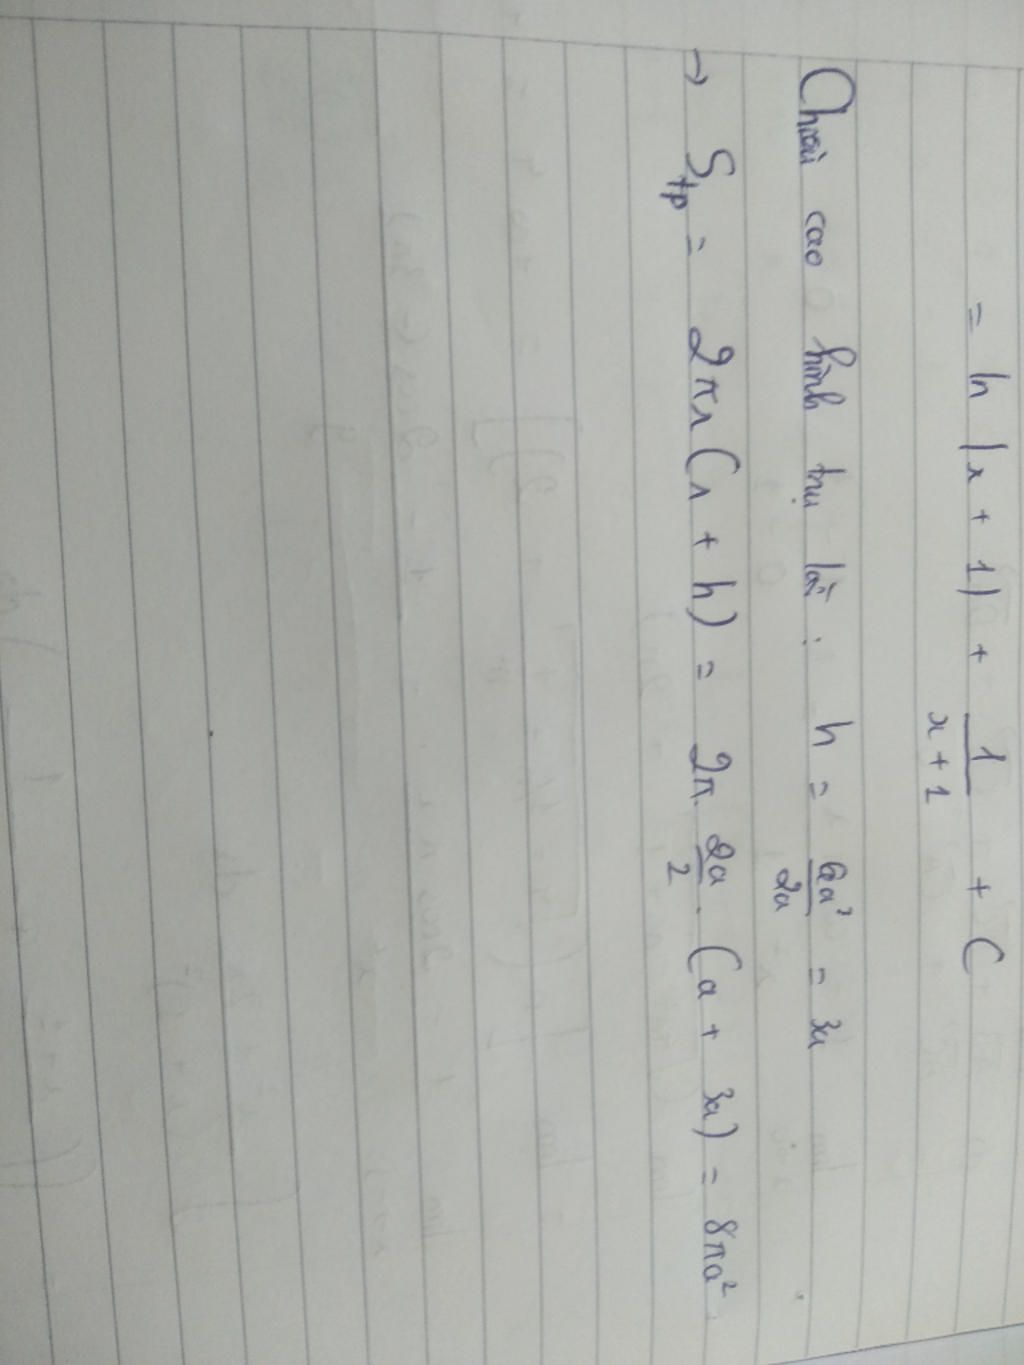 = ln |x + 1| + \frac{1}{x + 1} + C
Chiều cao hình trụ là : h = \frac{6a^2}{2a} = 3a
→ S_{tp} = 2πr(r + h) = 2π. \frac{2a}{2} . (a + 3a) = 8πa^2